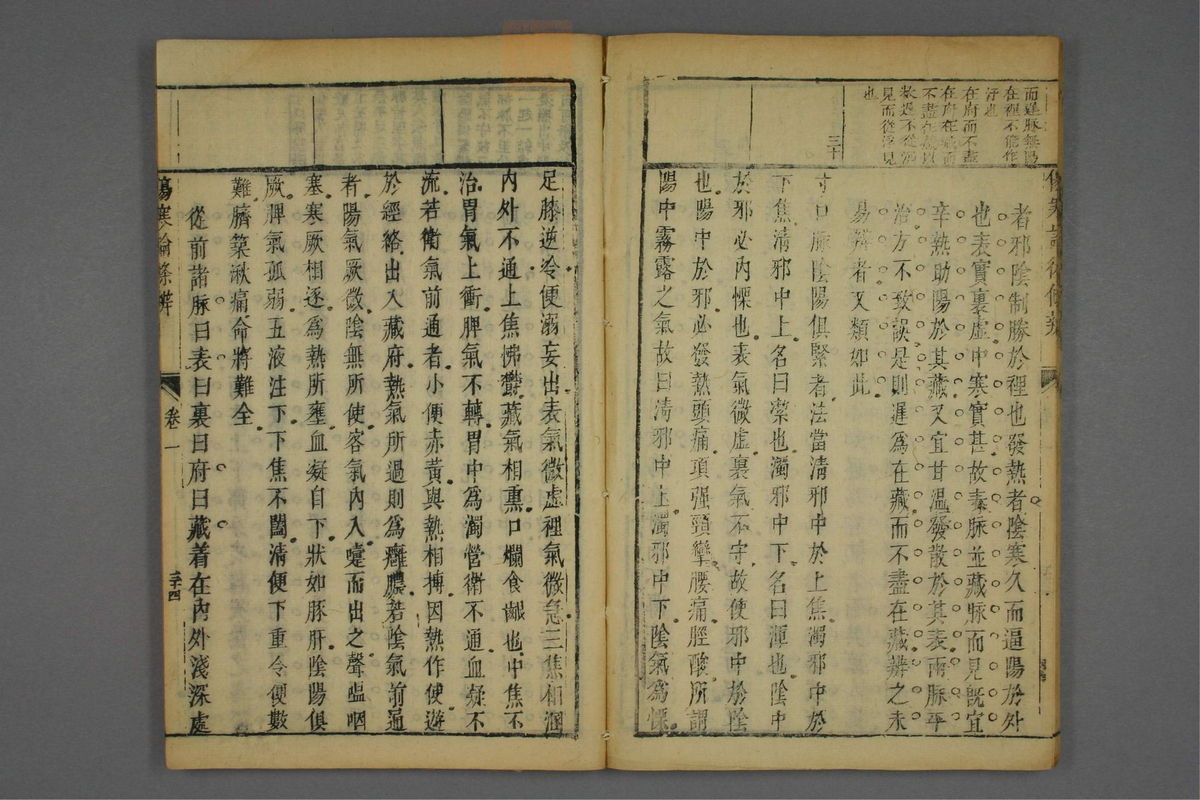 而遲脉無陽
在裡不能作
汗也
在府而不盡
在府在藏而
不盡在藏以
故遲不從沉
見而從浮見
也
三十
者邪陰制勝於裡也發熱者陰寒久而逼陽於外
也表實裏虛中寒實甚故秦脉並藏脉而見旣宜
辛熱助陽於其藏又宜甘溫發散於其表兩脉平
治方不致誤是則遲為在藏而不盡在藏辨之未
易辨者又類如此
寸口脉陰陽俱緊者法當淸邪中於上焦濁邪中於
下焦淸邪中上名曰潔也濁邪中下名曰渾也陰中
於邪必內慄也表氣微虛裏氣不守故使邪中於陰
也陽中於邪必發熱頭痛項强頸攣腰痛脛酸所謂
陽中霧露之氣故曰淸邪中上濁邪中下陰氣為慄
足膝逆冷便溺妄出表氣微虛裡氣微急三焦相溷
內外不通上焦怫鬱藏氣相熏口爛食齗也中焦不
治胃氣上衝脾氣不轉胃中為濁營衛不通血凝不
流若衛氣前通者小便赤黃與熱相搏因熱作使遊
於經絡出入藏府熱氣所過則為癰膿若陰氣前通
者陽氣厥微陰無所使客氣內入嚏而出之聲嗢咽
塞寒厥相逐為熱所壅血凝自下狀如豚肝陰陽俱
厥脾氣孤弱五液注下下焦不闔淸便下重令便數
難臍築湫痛命將難全
從前諸脉曰表曰裏曰府曰藏着在內外淺深處
傷寒論條辨
卷一
三十四